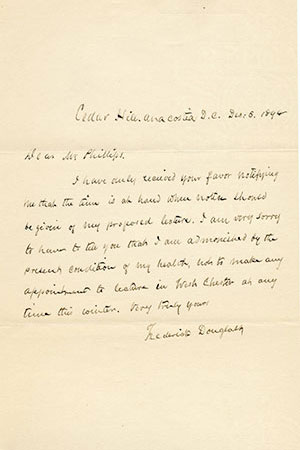 Cedar Hill. Anacostia D.C. Dec. 5. 1894
Dear Mr Phillips.
I have only received your favor notifying
me that the time is at hand when notice should
be given of my proposed lecture. I am very sorry
to have to tell you that I am admonished by the
present condition of my health, not to make any
appointment to lecture in West Chester at any
time this winter. Very truly yours
Frederick Douglass